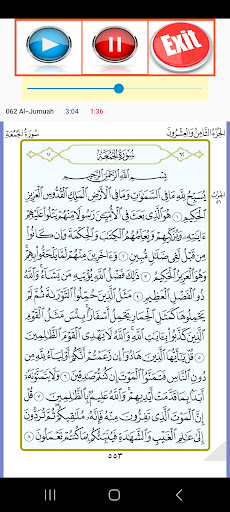 Exit
062 Al-Jumuah 3:04 1:36
سُورَةُ الجُمُعَة الجُزْءُ الثَّامِنُ وَالعِشْرُونَ
سُورَةُ الجُمُعَةِ
بِسْمِ اللَّهِ الرَّحْمَٰنِ الرَّحِيمِ
يُسَبِّحُ لِلَّهِ مَا فِي السَّمَٰوَٰتِ وَمَا فِي الْأَرْضِ الْمَلِكِ الْقُدُّوسِ الْعَزِيزِ
الْحَكِيمِ ١ هُوَ الَّذِي بَعَثَ فِي الْأُمِّيِّينَ رَسُولًا مِّنْهُمْ يَتْلُوا عَلَيْهِمْ
ءَايَٰتِهِ وَيُزَكِّيهِمْ وَيُعَلِّمُهُمُ الْكِتَٰبَ وَالْحِكْمَةَ وَإِن كَانُوا
مِن قَبْلُ لَفِي ضَلَٰلٍ مُّبِينٍ ٢ وَءَاخَرِينَ مِنْهُمْ لَمَّا يَلْحَقُوا بِهِمْ
وَهُوَ الْعَزِيزُ الْحَكِيمُ ٣ ذَٰلِكَ فَضْلُ اللَّهِ يُؤْتِيهِ مَن يَشَاءُ وَاللَّهُ
ذُو الْفَضْلِ الْعَظِيمِ ٤ مَثَلُ الَّذِينَ حُمِّلُوا التَّوْرَىٰةَ ثُمَّ لَمْ
يَحْمِلُوهَا كَمَثَلِ الْحِمَارِ يَحْمِلُ أَسْفَارًا بِئْسَ مَثَلُ الْقَوْمِ
الَّذِينَ كَذَّبُوا بِـَٔايَٰتِ اللَّهِ وَاللَّهُ لَا يَهْدِي الْقَوْمَ الظَّٰلِمِينَ
٥ قُلْ يَٰأَيُّهَا الَّذِينَ هَادُوا إِن زَعَمْتُمْ أَنَّكُمْ أَوْلِيَاءُ لِلَّهِ مِن
دُونِ النَّاسِ فَتَمَنَّوُا الْمَوْتَ إِن كُنتُمْ صَٰدِقِينَ ٦ وَلَا يَتَمَنَّوْنَهُ
أَبَدًا بِمَا قَدَّمَتْ أَيْدِيهِمْ وَاللَّهُ عَلِيمٌ بِالظَّٰلِمِينَ ٧ قُلْ
إِنَّ الْمَوْتَ الَّذِي تَفِرُّونَ مِنْهُ فَإِنَّهُ مُلَٰقِيكُمْ ثُمَّ تُرَدُّونَ
إِلَىٰ عَٰلِمِ الْغَيْبِ وَالشَّهَٰدَةِ فَيُنَبِّئُكُم بِمَا كُنتُمْ تَعْمَلُونَ ٨
٥٥٣